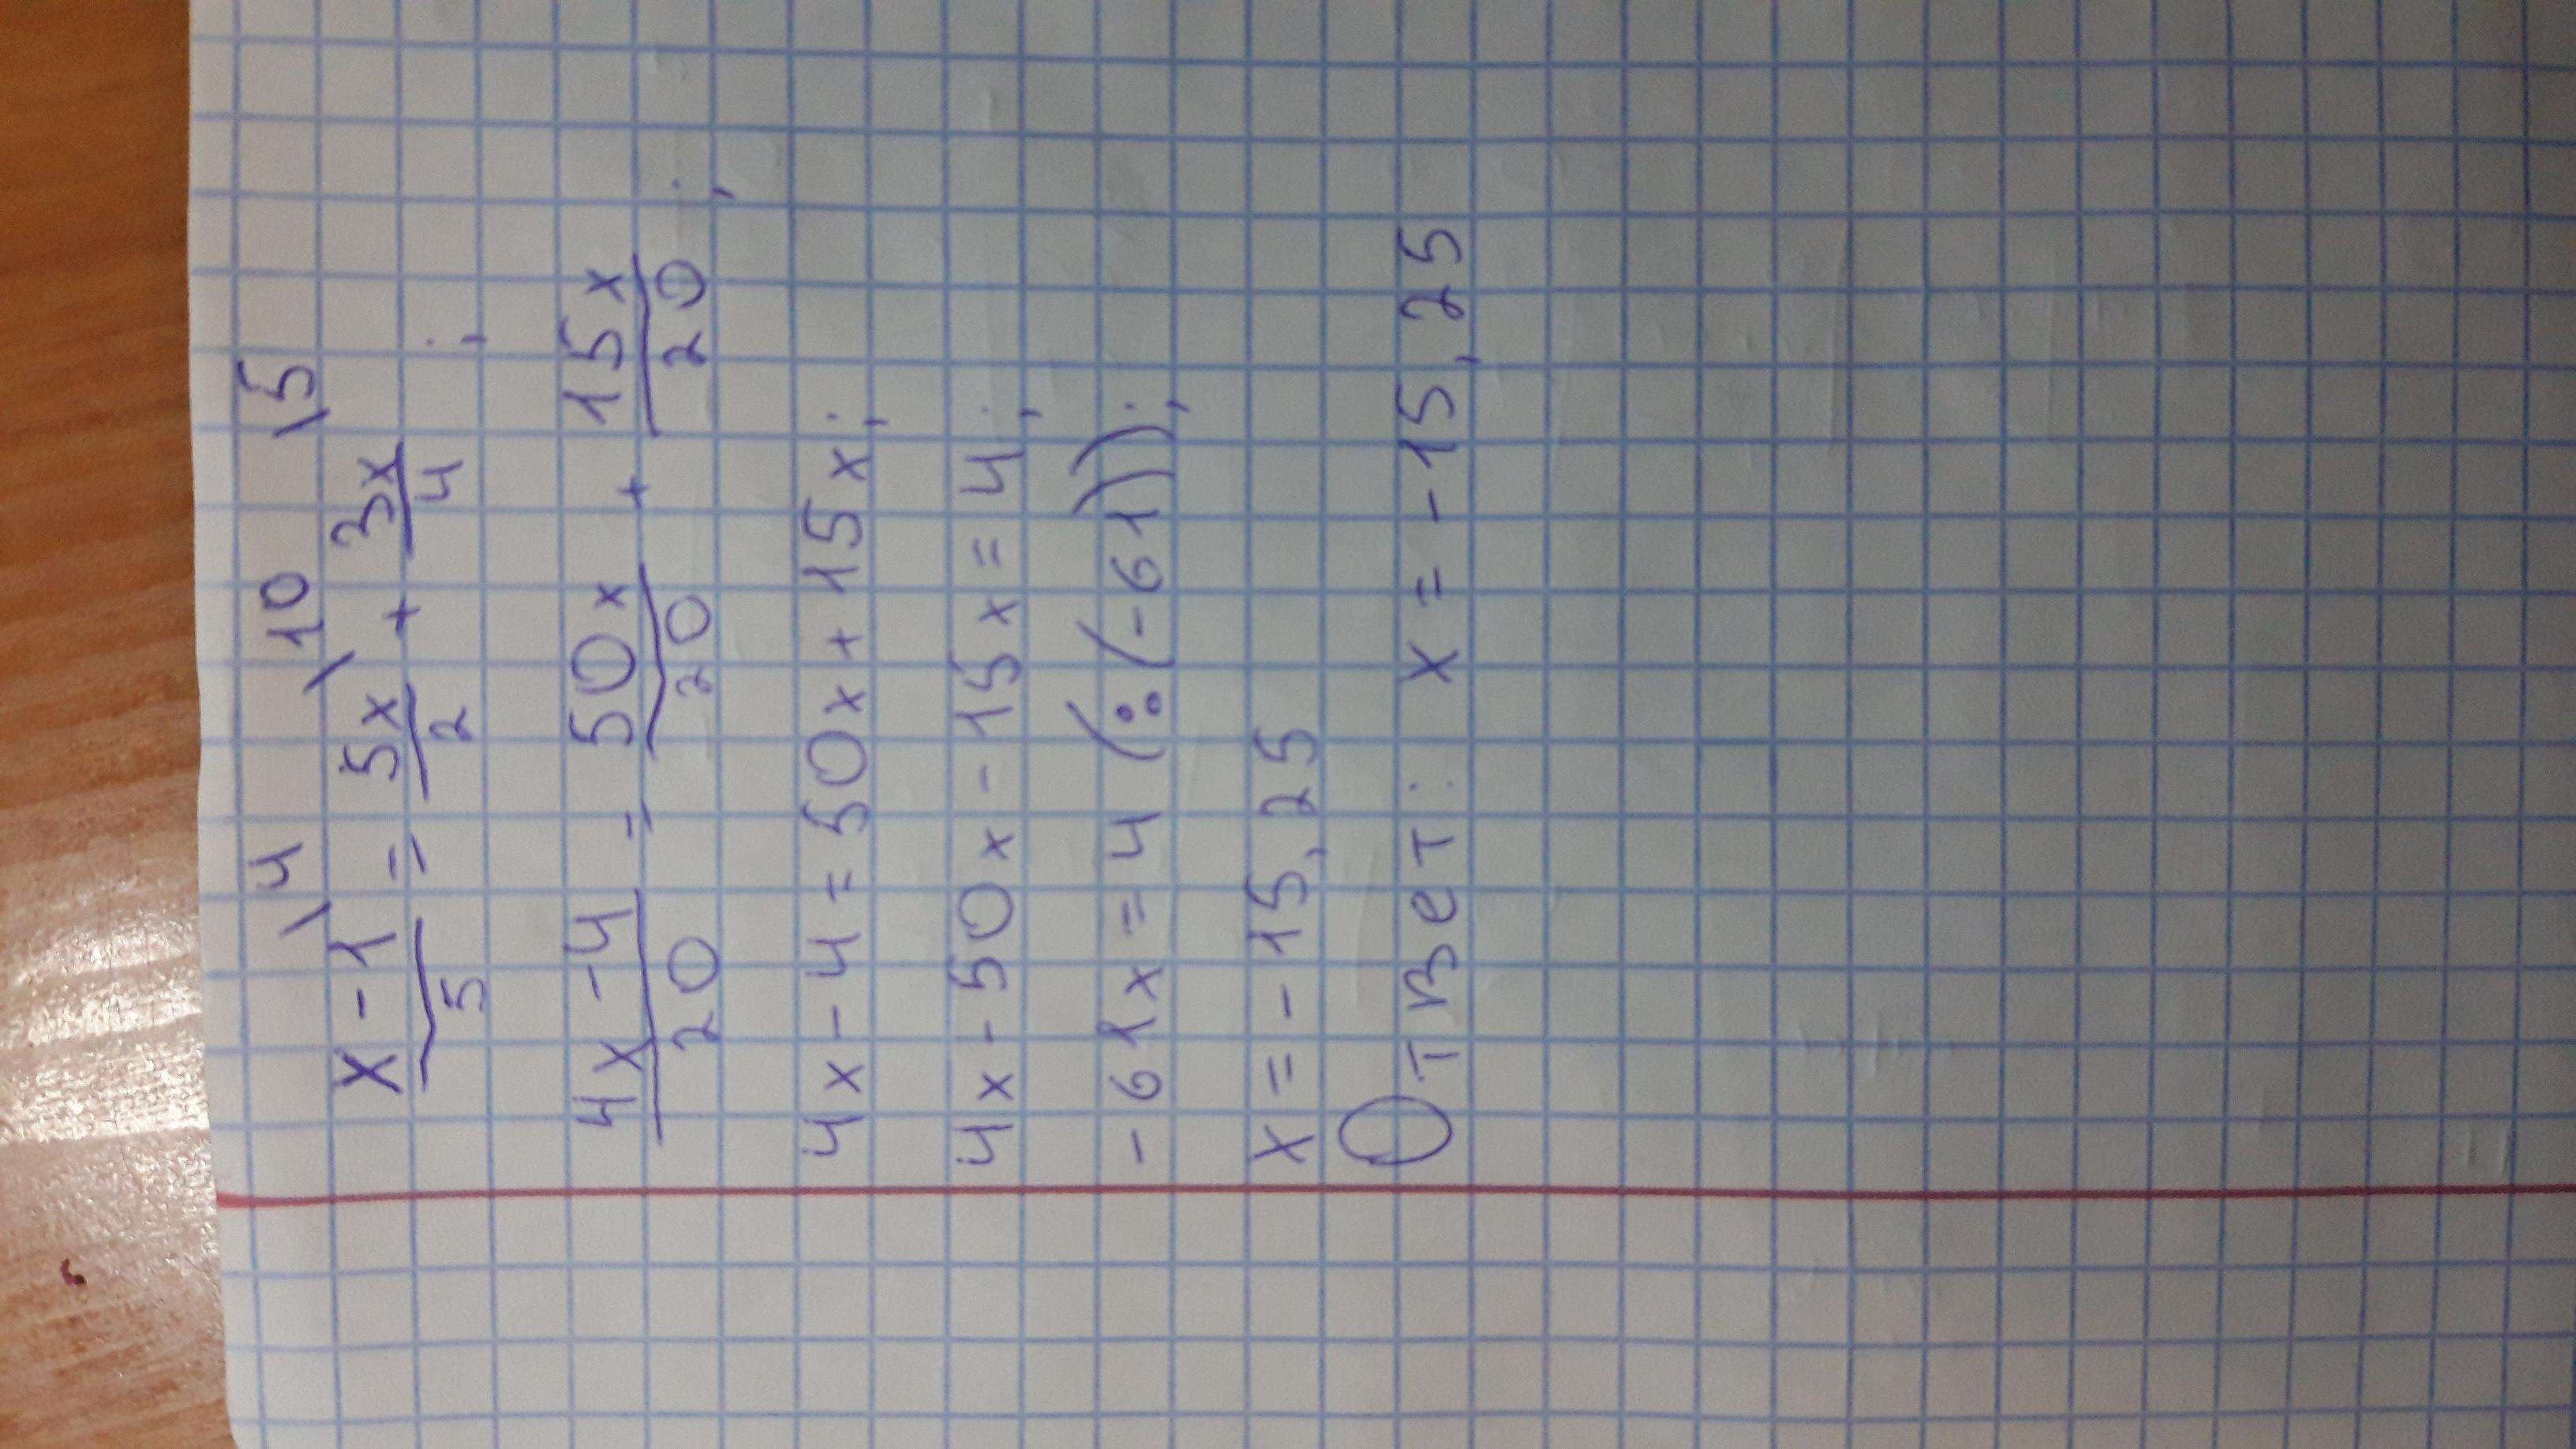 \4 \10 \5
x-1/5 = 5x/2 + 3x/4 ;
4x-4/20 = 50x/20 + 15x/20 ;
4x-4=50x+15x;
4x-50x-15x=4;
-61x=4 (:(-61));
x=-15,25
Ответ: x=-15,25